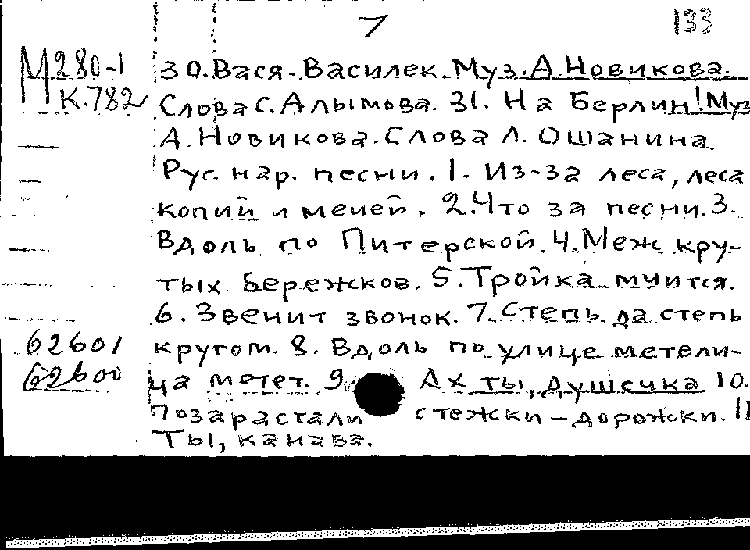 7
133
М280-1
К.782
30. Вася-Василек. Муз. А. Новикова.
Слова С. Алымова. 31. На Берлин! Муз
А. Новикова. Слова Л. Ошанина.
Рус. нар. песни. 1. Из-за леса, леса
копий и мечей. 2. Что за песни. 3.
Вдоль по Питерской. 4. Меж кру-
тых бережков. 5. Тройка мчится.
6. Звенит звонок. 7. Степь да степь
62601
кругом. 8. Вдоль по улице метели-
62600
ца метет. 9. Ах ты, душечка 10.
Позарастали стежки-дорожки. 11
Ты, канава.